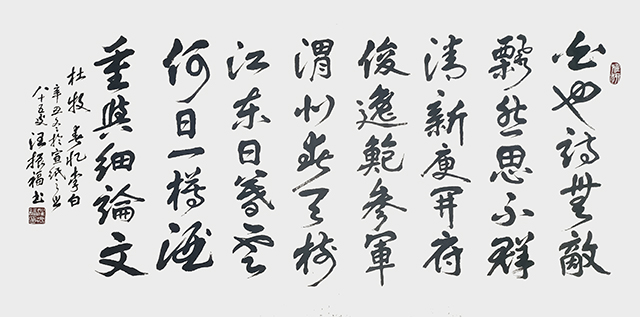 白也詩無敵
飄然思不群
清新庾开府
俊逸鮑參軍
渭北春天樹
江东日暮雲
何日一樽酒
重與細論文
杜牧春忆李白
辛丑冬於宣紙之乡
八十五叟汪振福书